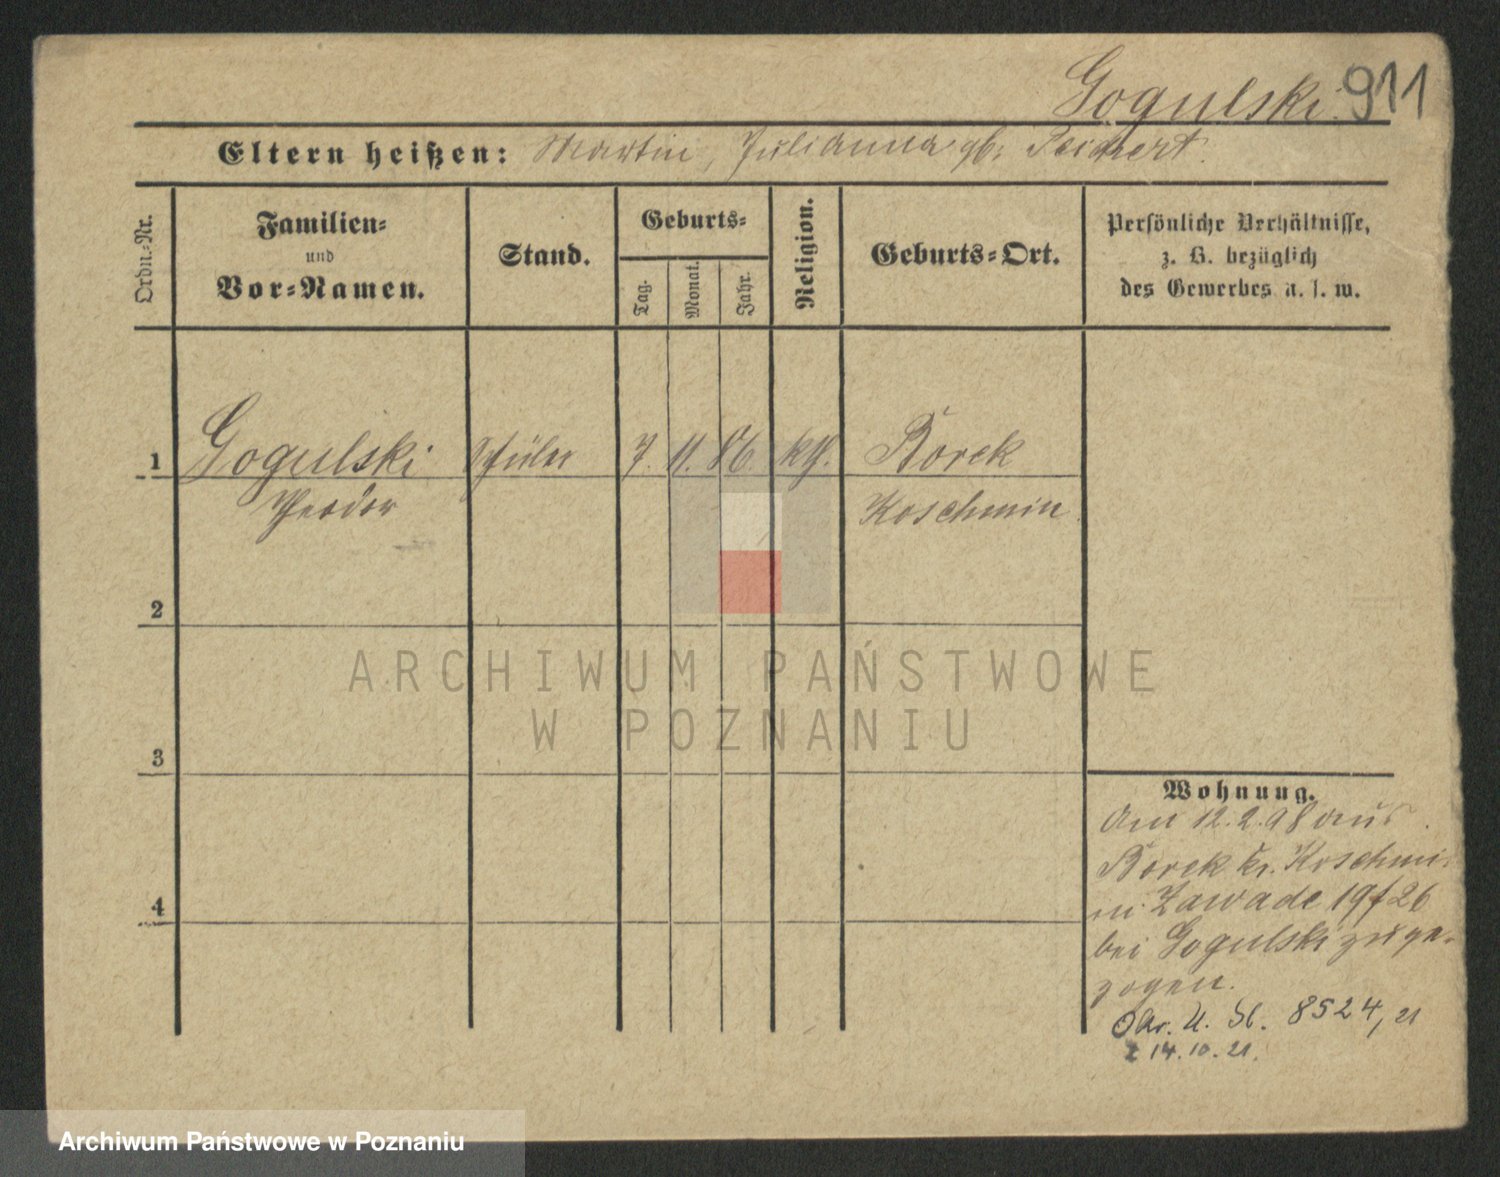 Gogulski. 911
Eltern heißen: Martin, Julianna gb.
Ordn.-Nr.
Familien-
und
Vor-Namen.
Stand.
Geburts-
Tag.
Monat.
Jahr.
Religion.
Geburts-Ort.
Persönliche Verhältnisse,
z. B. bezüglich
des Gewerbes u. s. w.
1 Gogulski Schüler 7. 11. 86. kth. Borek
Theodor Koschmin
2
3
4
Wohnung.
Am 12.2.98 aus
Borek Kr. Koschmi
in Zawade 19/26
bei Gogulski zuge-
zogen.
8524, 21
14.10.21.
ARCHIWUM PAŃSTWOWE
W POZNANIU
Archiwum Państwowe w Poznaniu